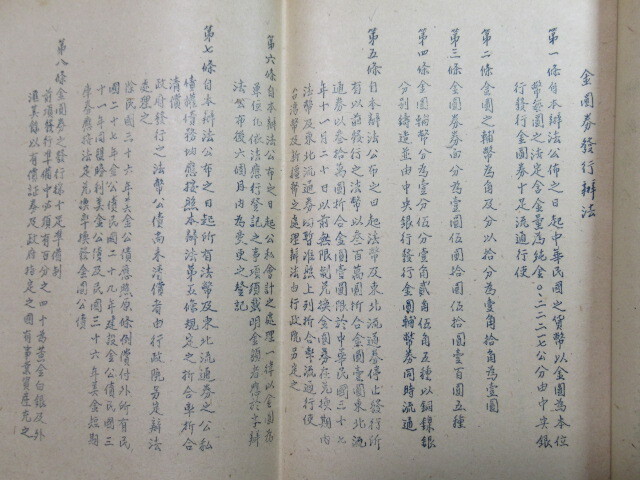 金圓券發行辦法
第一條自本辦法公佈之日起中華民國之貨幣以金圓為本位
幣每圓之法定含金量為純金〇.二二二一七公分由中央銀
行發行金圓券十足流通行使
第二條金圓之輔幣為角及分以拾分為壹角拾角為壹圓
第三條金圓券券面分為壹圓伍圓拾圓伍拾圓壹百圓五種
第四條金圓輔幣分為壹分伍分壹角貳角伍角五種以銅鎳銀
分別鑄造並由中央銀行發行金圓輔幣券同時流通
第五條自本辦法公布之日起法幣及東北流通券停止發行所
有以前發行之法幣以叁百萬圓折合金圓壹圓東北流
通券以叁拾萬圓折合金圓壹圓限於中華民國三十七
年十一月二十日以前無限制兌換金圓券在兌換期內
法幣及東北流通券均暫准照上列折合率流通行使
台灣幣及新疆幣之處理辦法由行政院另定之
第六條自本辦法公布之日起公私會計之處理一律以金圓為
單位依法應行登記之事項須載明金額者應於本辦
法公布後六個月內為變更之登記
第七條自本辦法公布之日起所有法幣及東北流通券之公私
債權債務均應按照本辦法第五條規定之折合率折合
清償
政府發行之法幣公債尚未清償者由行政院另定辦法
處理之
除民國三十六年美金公債應照原條例償付外所有民
國二十七年金公債民國二十九年建設金公債民國三
十一年同盟勝利美金公債及民國三十六年美金短期
庫券應按法定兌換率換發金圓公債
第八條金圓券之發行採十足準備制
前項發行準備中必須有百分之四十為黃金白銀及外
匯其餘以有價証券及政府指定之國有事業資產充之